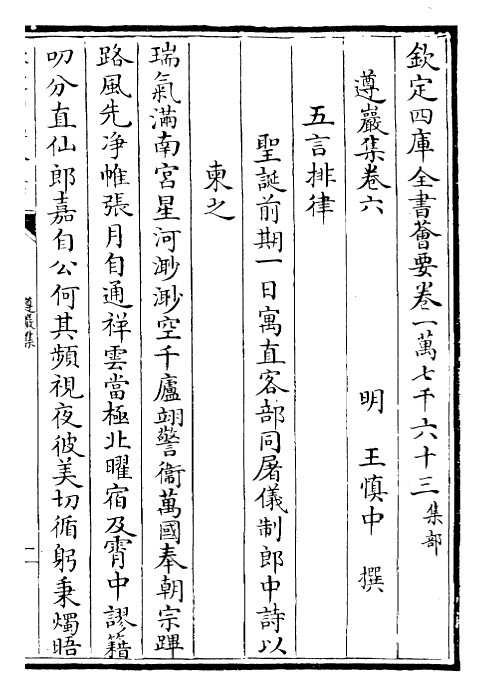 欽定四庫全書薈要卷一萬七千六十三集部
遵巖集卷六
明 王慎中 撰
五言排律
聖誕前期一日寓直客部同屠儀制郎中詩以
柬之
瑞氣滿南宮星河渺渺空千廬翊警衞萬國奉朝宗蹕
路風先净帷張月自通祥雲當極北曜宿及霄中謬籍
叨分直仙郎嘉自公何其頻視夜彼美切循躬秉燭晤
遵巖集